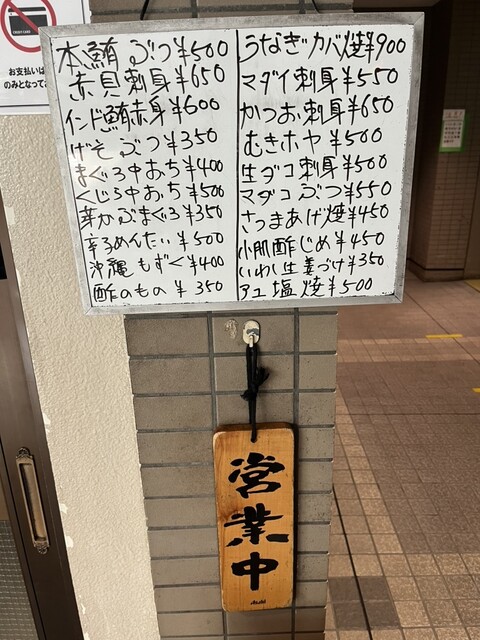 お支払いは
のみとなってお
本鮪ぶつ ¥500
赤貝刺身 ¥650
インド鮪赤身 ¥600
げそぶつ ¥350
まぐろ中おち ¥400
くじら中おち ¥500
芽かぶまぐろ ¥350
辛子めんたい ¥500
沖縄もずく ¥400
酢のもの ¥350
うなぎカバ焼 ¥900
マダイ刺身 ¥550
かつお刺身 ¥650
むきホヤ ¥500
生ダコ刺身 ¥500
マダコぶつ ¥550
さつまあげ焼 ¥450
小肌酢じめ ¥450
いわし生姜づけ ¥350
アユ塩焼 ¥500
営業中
Asahi